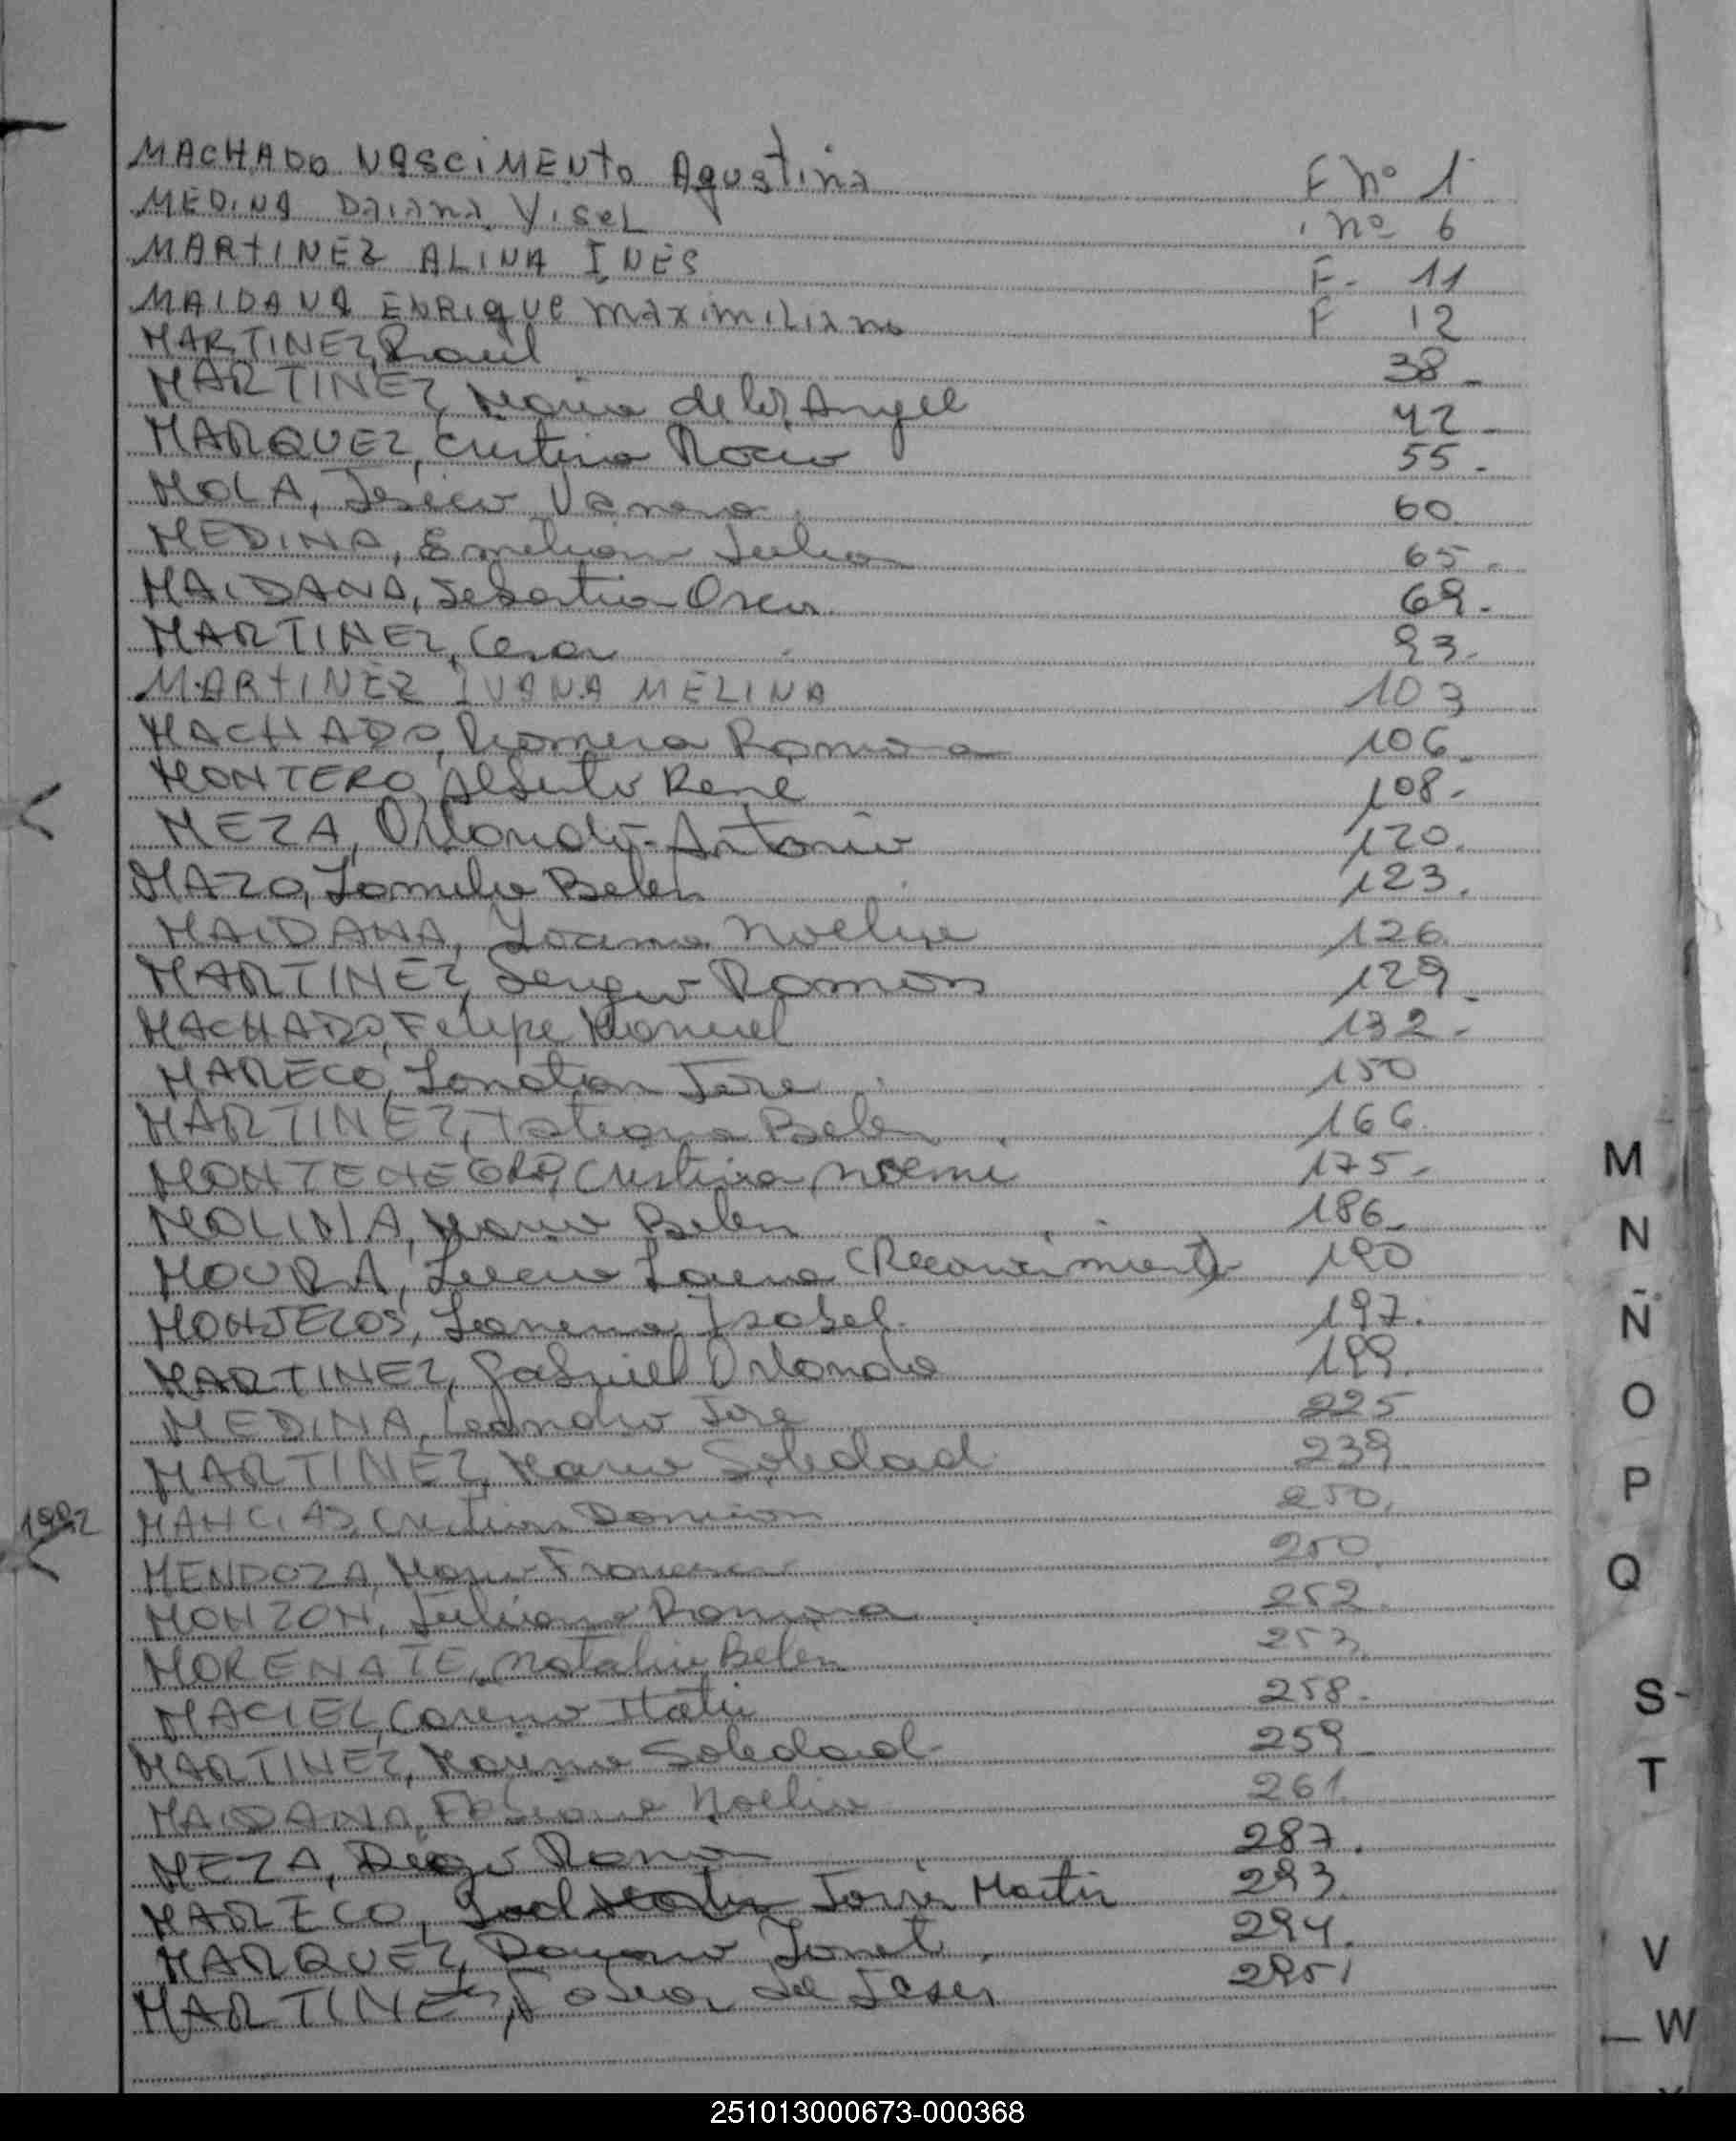 MACHADO NASCIMENTO Agustina F Nº 1
MEDINA DAIANA YISEL Nº 6
MARTINEZ ALINA INES F- 11
MAIDANA ENRIQUE MAXIMILIANO F 12
MARTINEZ, Raul 38-
MARTINEZ, Maria de los Angel 42-
MARQUEZ, Cristina Rocio 55-
MOLA, Jesica Vanesa 60
MEDINA, Emiliano Julian 65-
MAIDANA, Sebastian Oscar 69-
MARTINEZ, Cesar 93-
MARTINEZ IVANA MELINA 103
MACHADO, Romina 106
MONTERO, Alberto Rene 108-
MEZA, Orlando Antonio 120.
MAZO, Yamila Belen 123.
MAIDANA, Yoana Noelia 126
MARTINEZ, Sergio Ramon 129.
MACHADO, Felipe Manuel 132-
MARECO, Jonatan Jose 150
MARTINEZ, Tatiana Belen 166
MONTENEGRO, Cristina Noemi 175-
MOLINA, Maria Belen 186-
MOURA, Lorena (Reconocimiento) 190
MONJELOS, Isabel 197.
MARTINEZ, Gabriel Orlando 199.
MEDINA, Leandro Jose 225
MARTINEZ, Maria Soledad 239
1992 MANCIAS, Cristian Damian 250.
MENDOZA, Maria Francesca 250
MONZON, Juliana Romina 252.
MORENATE, Natalia Belen 253.
MACIEL, Carina Itati 258-
MARTINEZ, Marina Soledad 259
MAIDANA, Fabiana Noelia 261
MEZA, Diego Roman 287.
MARECO, Martin 293.
MARQUEZ, Dayana Janet 294.
MARTINEZ, de Jesus 295
M
N
Ñ
O
P
Q
S
T
V
W
251013000673-000368